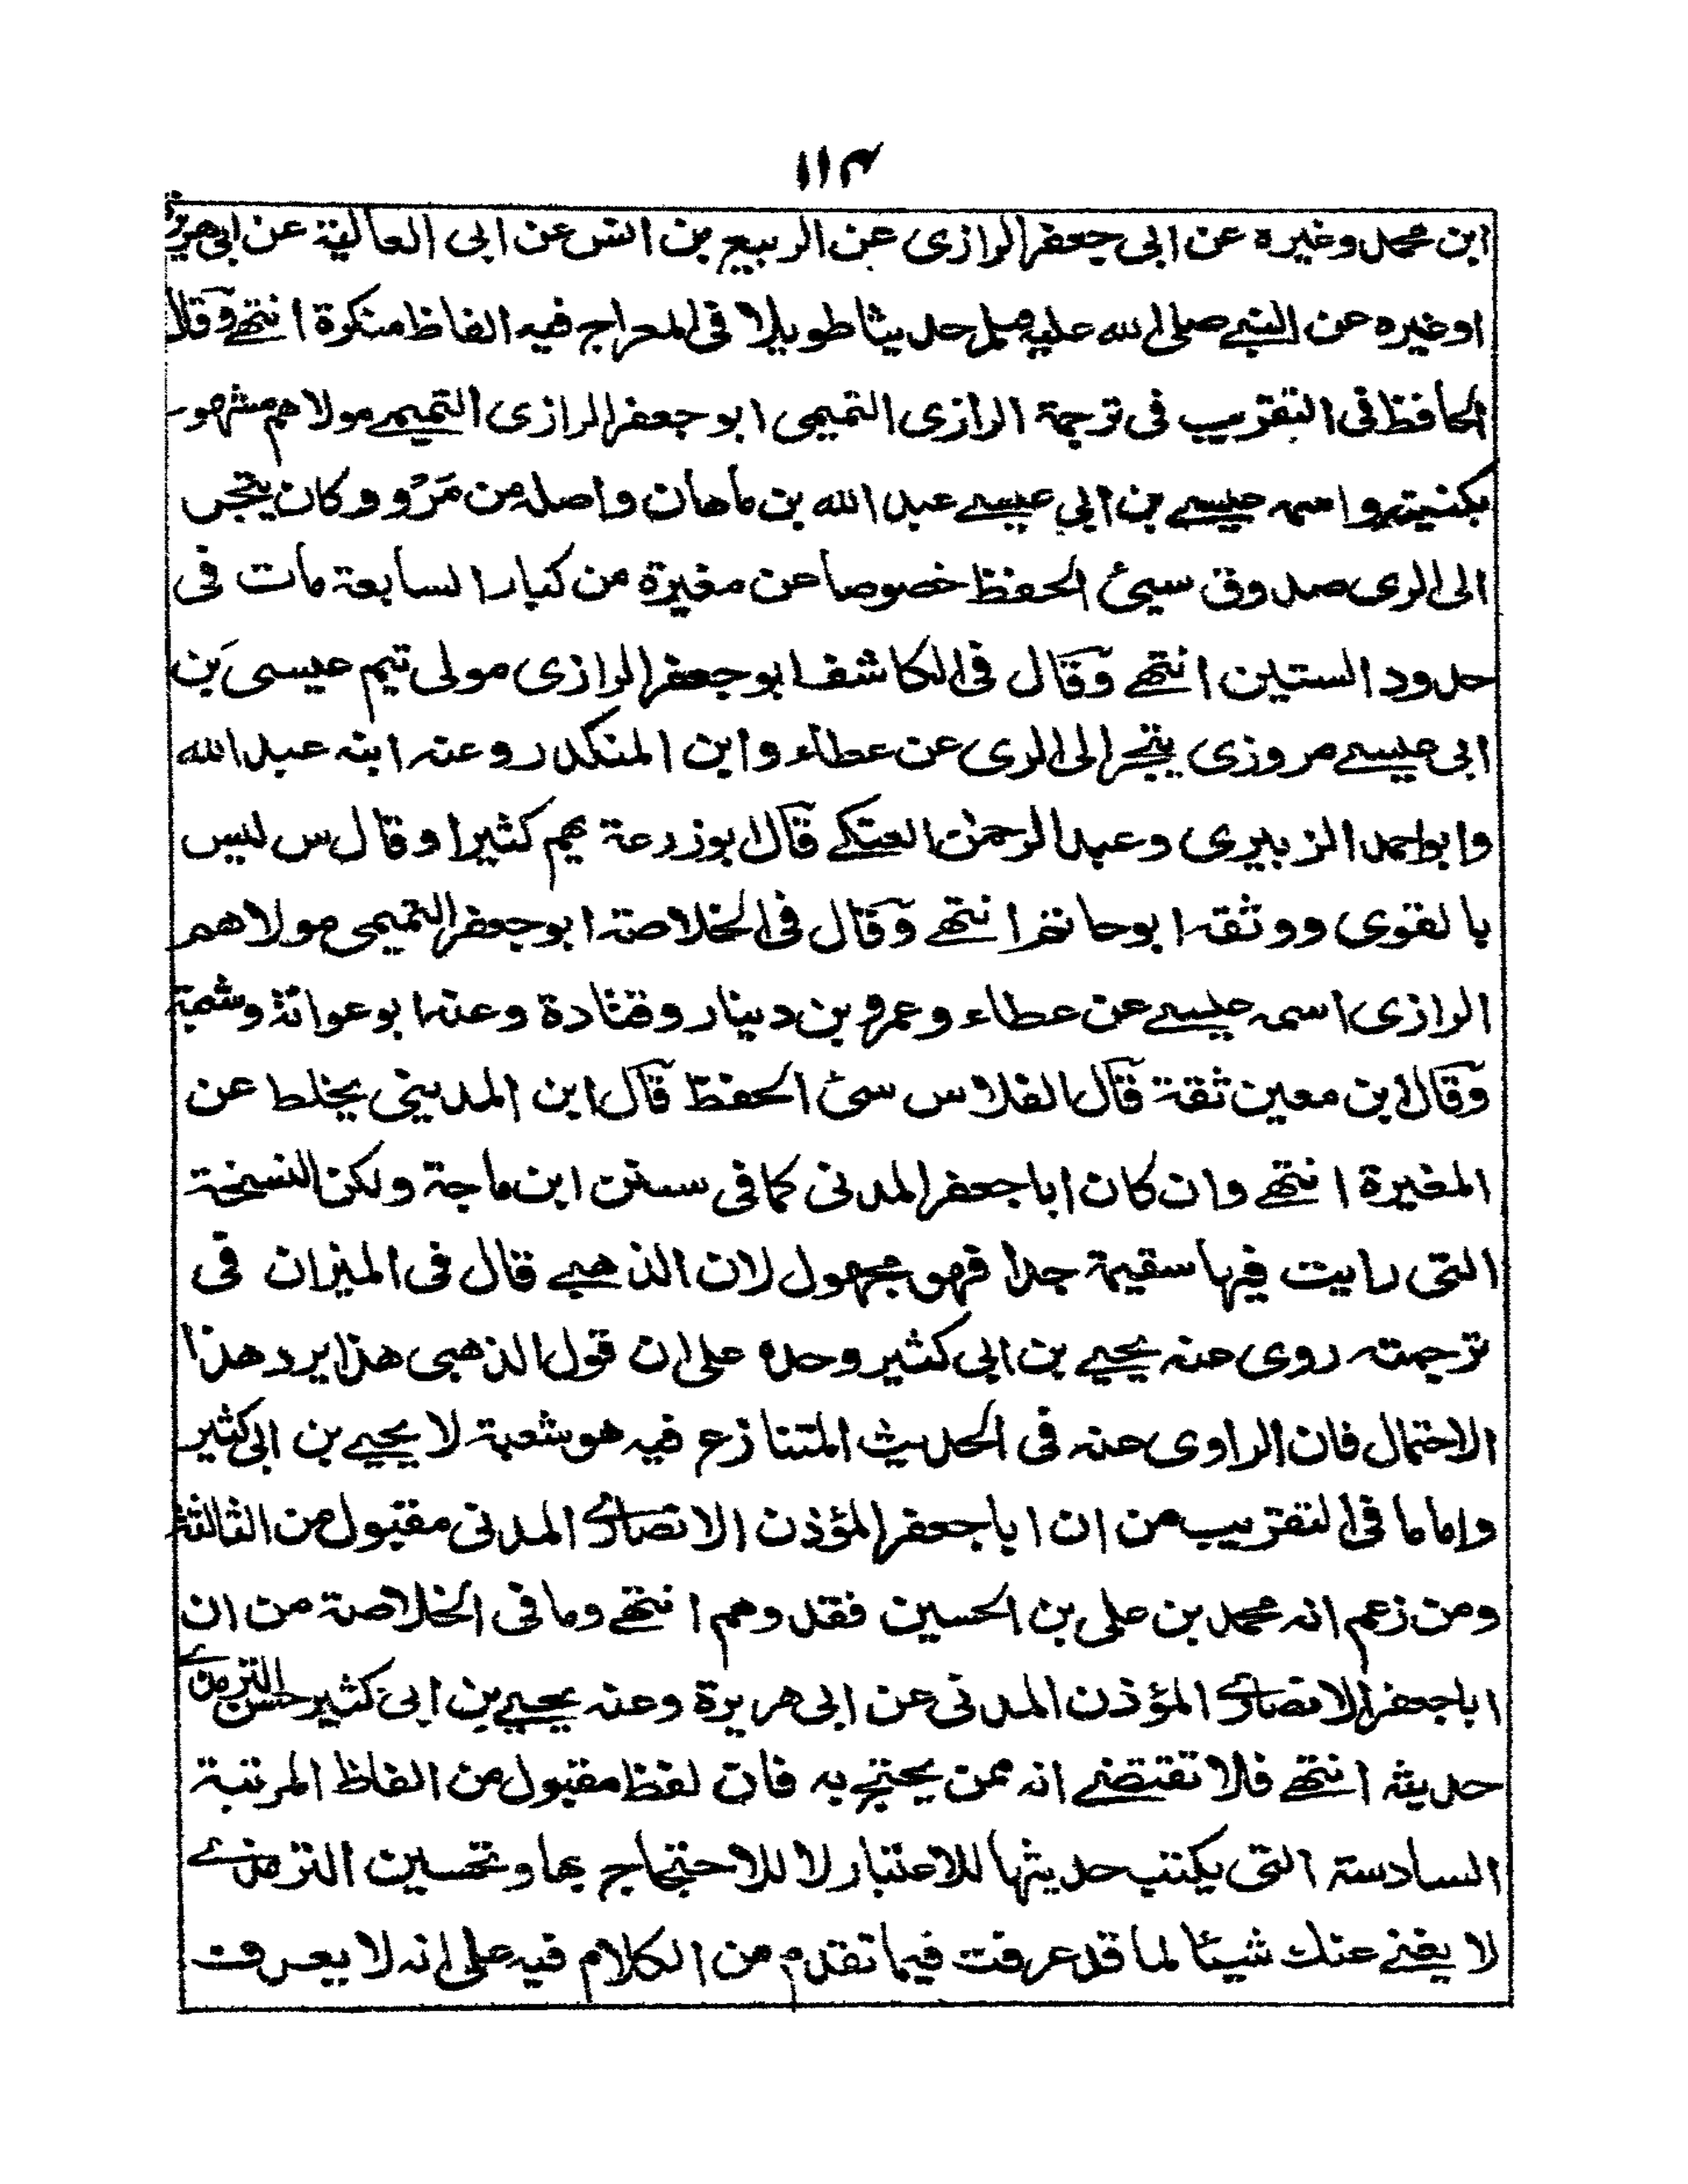 ١١٤
ابن محمد وغيره عن ابى جعفر الرازى عن الربيع بن انس عن ابى العالية عن ابى هريرة
او غيره عن النبي صلى الله عليه وسلم حديثا طويلا فى المعراج فيه الفاظ منكرة انتهے وقال
الحافظ فى التقريب فى ترجمة الرازى التميمى ابو جعفر الرازى التميمے مولاهم مشهور
بكنيته واسمه عيسے بن ابي عيسے عبد الله بن ماهان واصله من مَرْو وكان يتجر
الى الرى صدوق سيئ الحفظ خصوصا عن مغيرة من كبار السابعة مات فى
حدود الستين انتهے وقال فى الكاشف ابو جعفر الرازى مولى تيم عيسى بن
ابى عيسے مروزى يتجر الى الرى عن عطاء وابن المنكدر وعنه ابنه عبد الله
وابو احمد الزبيرى وعبد الرحمٰن العتكے قال ابو زرعة يهم كثيرا وقال س ليس
بالقوى ووثقه ابو حاتم انتهے وقال فى الخلاصة ابو جعفر التميمى مولاهم
الرازى اسمه عيسے عن عطاء وعمرو بن دينار وقتادة وعنه ابو عوانة وشعبة
وقال ابن معين ثقة قال الفلاس سئ الحفظ قال ابن المدينى يخلط عن
المغيرة انتهے وان كان ابا جعفر المدنى كما فى سنن ابن ماجة ولكن النسخة
التى رايت فيها سقيمة جدا فهو مجهول لان الذهبے قال فى الميزان فى
ترجمته روى عنه يحيے بن ابى كثير وحده على ان قول الذهبى هذا يرد هذا
الاحتمال فان الراوى عنه فى الحديث المتنازع فيه هو شعبة لا يحيے بن ابى كثير
واما ما فى التقريب من ان ابا جعفر المؤذن الانصارے المدنى مقبول من الثالثة
ومن زعم انه محمد بن على بن الحسين فقد وهم انتهے وما فى الخلاصة من ان
ابا جعفر الانصارے المؤذن المدنى عن ابى هريرة وعنه يحيے بن ابى كثير حسن الترمذے
حديثه انتهے فلا تقتضے انه ممن يحتج به فان لفظ مقبول من الفاظ المرتبة
السادسة التى يكتب حديثها للاعتبار لا للاحتجاج بها وتحسين الترمذے
لا يغنے عنك شيئا لما قد عرفت فيما تقدم من الكلام فيه على انه لا يعرف